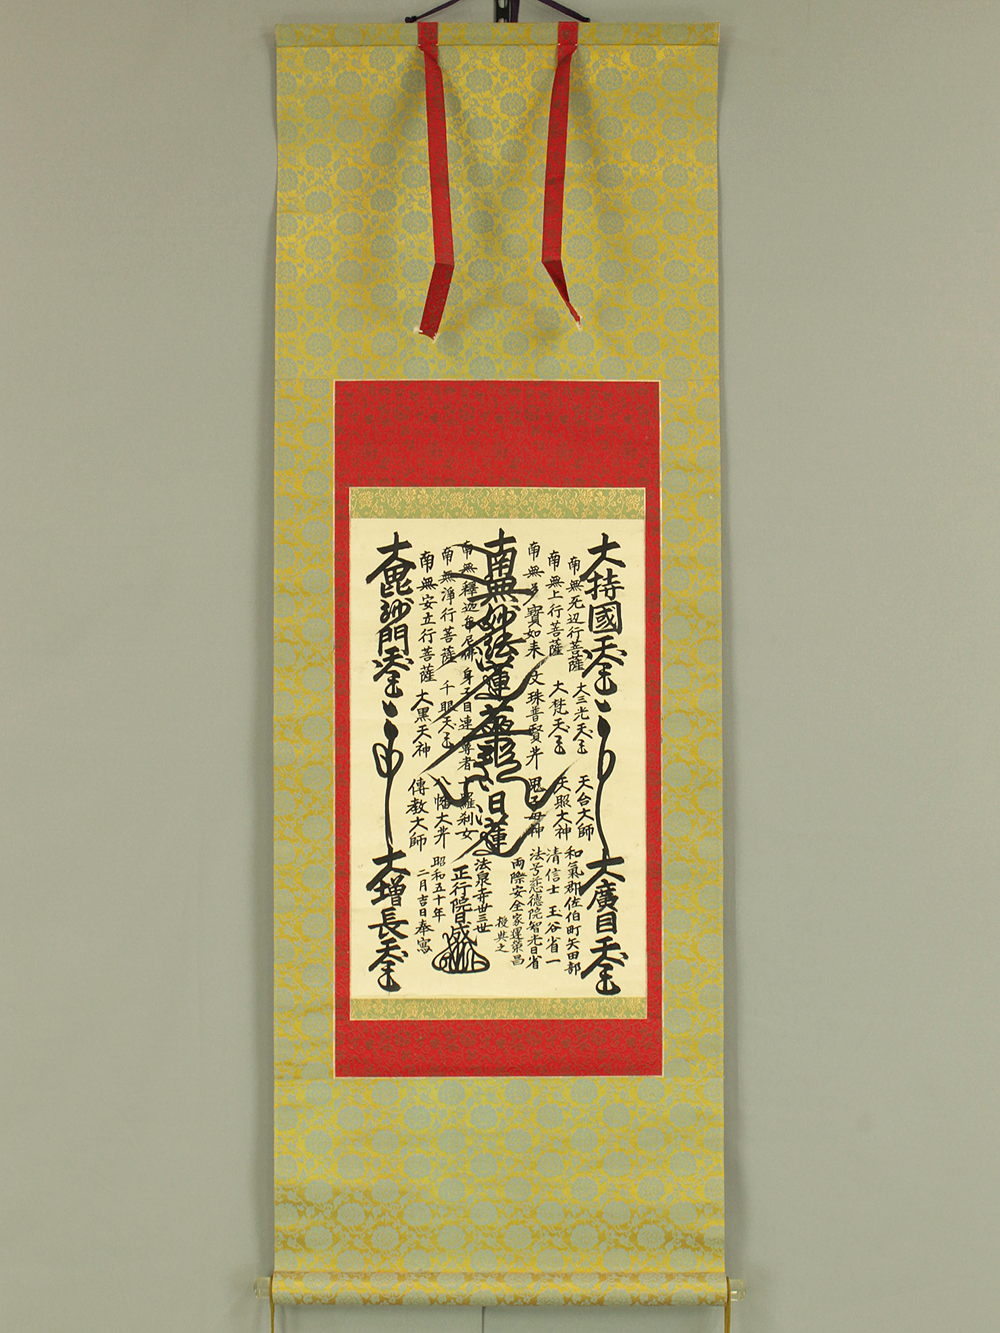 大持國天王
大廣目天王
南無无辺行菩薩
大三光天王
天台大師
和氣郡佐伯町矢田部
南無上行菩薩
大梵天王
天照大神
清信士 玉谷省一
南無多寶如来
文珠普賢
鬼子母神
法号慈德院智光日省
両際安全家運栄昌
授与之
南無妙法蓮華経
日蓮
南無釋迦牟尼佛
身子目連尊者
十羅刹女
法泉寺丗三世
正行院日盛
南無浄行菩薩
千眼天王
八幡大
昭和五十年
南無安立行菩薩
大黒天神
傳教大師
二月吉日奉寫
大毘沙門天王
大増長天王